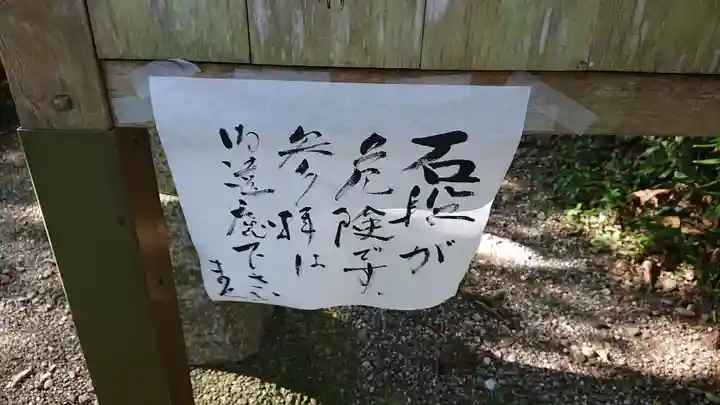 石段が
危険です、
参拝は
御遠慮下さい